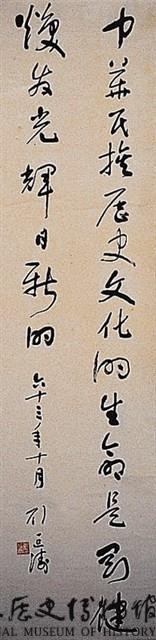 中華民族歷史文化的生命是剛健
煥發光輝日新的
六十三年十月
歷史博館
NAL MUSEUM OF HISTORY